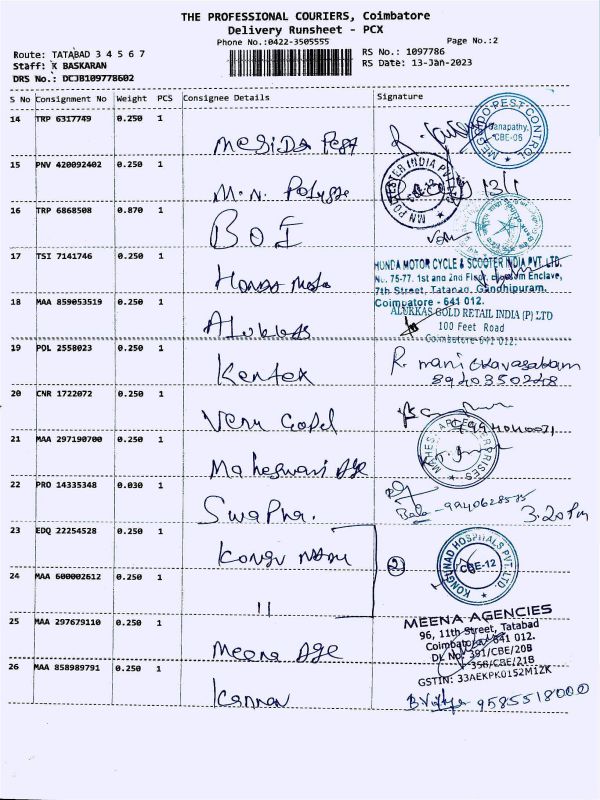 THE PROFESSIONAL COURIERS, Coimbatore
Delivery Runsheet - PCX
Phone No.:0422-3505555
Page No.:2
Route: TATABAD 3 4 5 6 7
RS No.: 1097786
Staff: K BASKARAN
RS Date: 13-Jan-2023
DRS No.: DCJB109778602
S No Consignment No Weight PCS Consignee Details Signature
14 TRP 6317749 0.250 1
MEGIDO PEST CONTROL
Ganapathy,
CBE-06
15 PNV 420092402 0.250 1 M.N. 13/1
16 TRP 6868508 0.870 1 BOI
17 TSI 7141746 0.250 1 Honda
HONDA MOTOR CYCLE & SCOOTER INDIA PVT. LTD.
No. 75-77, 1st and 2nd Floor, Enclave,
7th Street, Tatabad, Gandhipuram,
Coimbatore - 641 012.
18 MAA 859053519 0.250 1
ALUKKAS GOLD RETAIL INDIA (P) LTD
100 Feet Road
Coimbatore-641 012.
19 POL 2558023 0.250 1 Kentex
8940350248
20 CNR 1722072 0.250 1 Venu Gopal
21 MAA 297190700 0.250 1 Maheswari Age
22 PRO 14335348 0.030 1 Swapna.
Bala - 9940628575
3.20 Pm
23 EDQ 22254528 0.250 1 Kongu
2
KONGUNAD HOSPITALS PVT. LTD.
CBE-12
24 MAA 600002612 0.250 1 "
25 MAA 297679110 0.250 1 Meena Age
MEENA AGENCIES
96, 11th Street, Tatabad
Coimbatore 641 012.
DL No: 391/CBE/20B
358/CBE/21B
GSTIN: 33AEKPK0152M1ZK
26 MAA 858989791 0.250 1 Kannan
9585518000